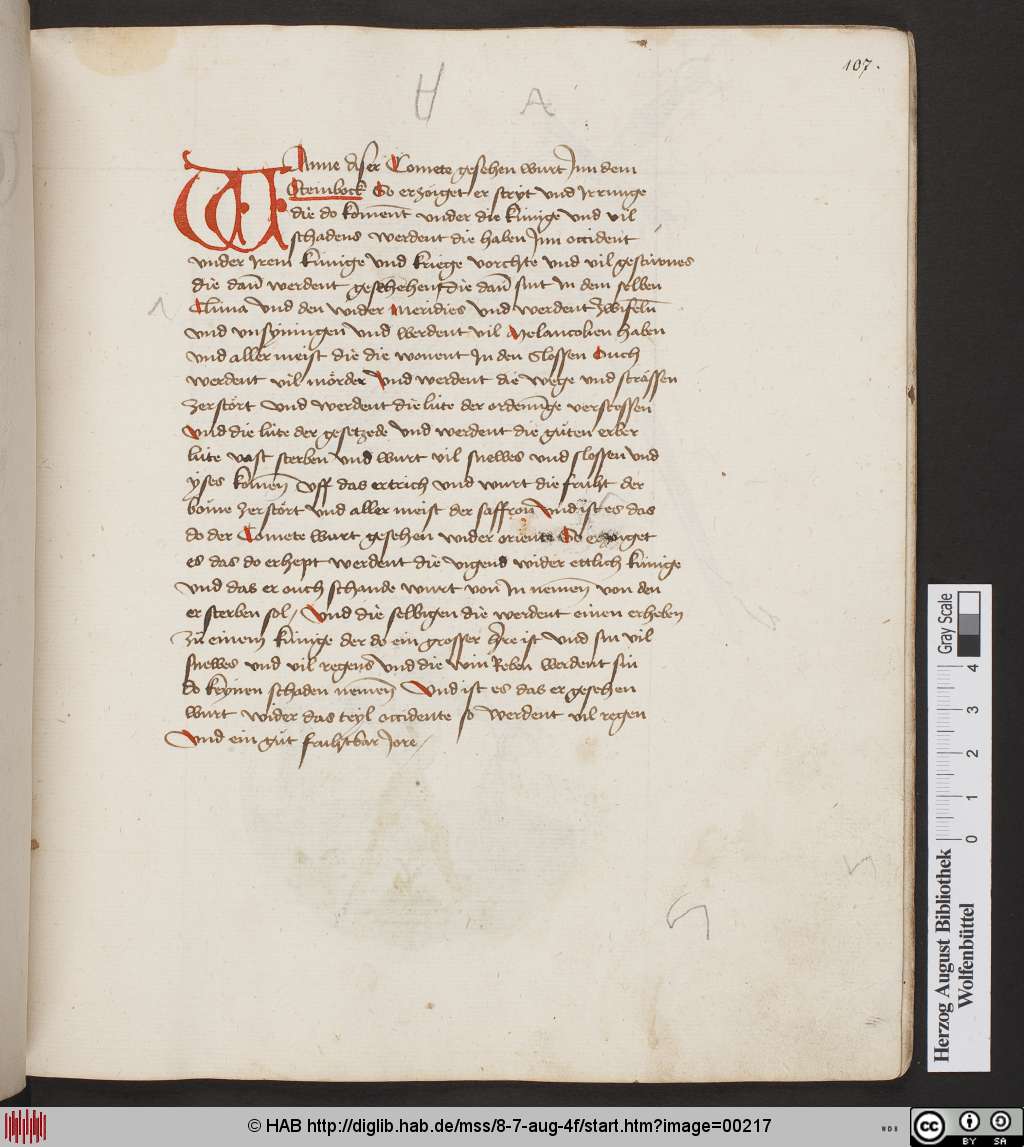 107.
Wanne diser Comete gesehen wurt Jnn dem
Steinbock So erzöiget er stryt vnd Jrrunge
die do koment vnder die künige vnd vil
schadens werdent die haben Jnn occident
vnder Jrem künige vnd kriege vorchte vnd vil gestürnes
die dañ werdent geschehen die dañ sint Jn dem selben
Clima vnd den wider meridies vnd werdent zwifeln
vnd vnsynnigen vnd werdent vil Melancolien haben
vnd aller meist die die wonent Jn den Slossen Ouch
werdent vil mörder Vnd werdent die wege vnd strässen
zerstört vnd werdent die lüte der ordenũge verstossen
Vnd die lüte der gesetzede vnd werdent die güten erber
lüte vast sterben vnd wurt vil snewes vnd slossen vnd
yses komeñ vff das ertrich vnd wurt die fruht der
böime zerstört vnd aller meist der saffron Vnd ist es das
do der Comete wurt gesehen wider oriente So erzoiget
es das do erhept werdent die vigend wider ettlich künige
vnd das er ouch schande wurt von Jn nemeñ von den
er sterben sol / Vnd die selbigen die werdent einen erheben
zü einem künige der do ein grosser h're ist vnd sin vil
snewes vnd vil regens vnd die win Reben werdent sin
do keynen schaden nemeñ Vnd ist es das er gesehen
wurt wider das teyl occidente so werdent vil regen
Vnd ein güt fruhtbar Jore /
Gray Scale
0 1 2 3 4
Herzog August Bibliothek
Wolfenbüttel
© HAB http://diglib.hab.de/mss/8-7-aug-4f/start.htm?image=00217
WDB
cc BY SA